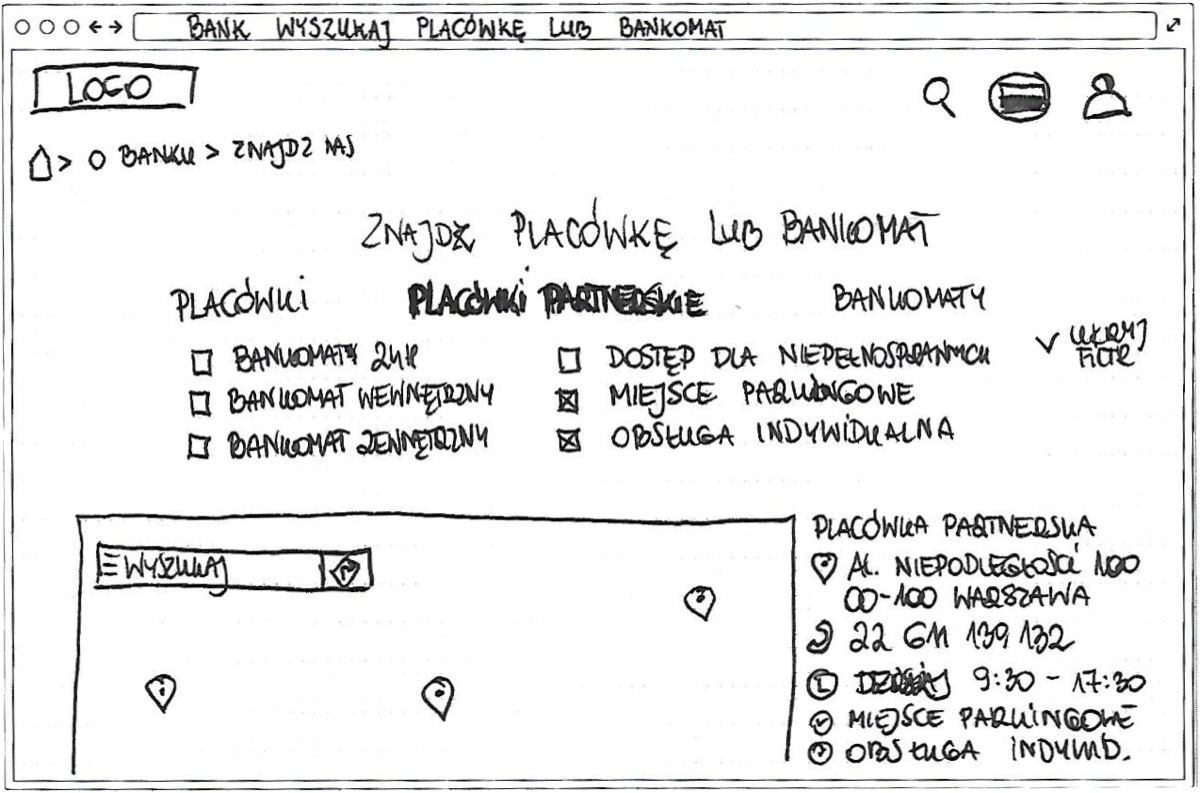 BANK WYSZUKAJ PLACÓWKĘ LUB BANKOMAT
LOGO
> O BANKU > ZNAJDZ NAS
ZNAJDŹ PLACÓWKĘ LUB BANKOMAT
PLACÓWKI PLACÓWKI PARTNERSKIE BANKOMATY
BANKOMATY 24H DOSTĘP DLA NIEPEŁNOSPRAWNYCH UKRYJ
FILTR
BANKOMAT WEWNĘTRZNY MIEJSCE PARKINGOWE
BANKOMAT ZEWNĘTRZNY OBSŁUGA INDYWIDUALNA
WYSZUKAJ
PLACÓWKA PARTNERSKA
AL. NIEPODLEGŁOŚCI 100
00-100 WARSZAWA
22 611 139 132
DZISIAJ 9:30 - 17:30
MIEJSCE PARKINGOWE
OBSŁUGA INDYWID.